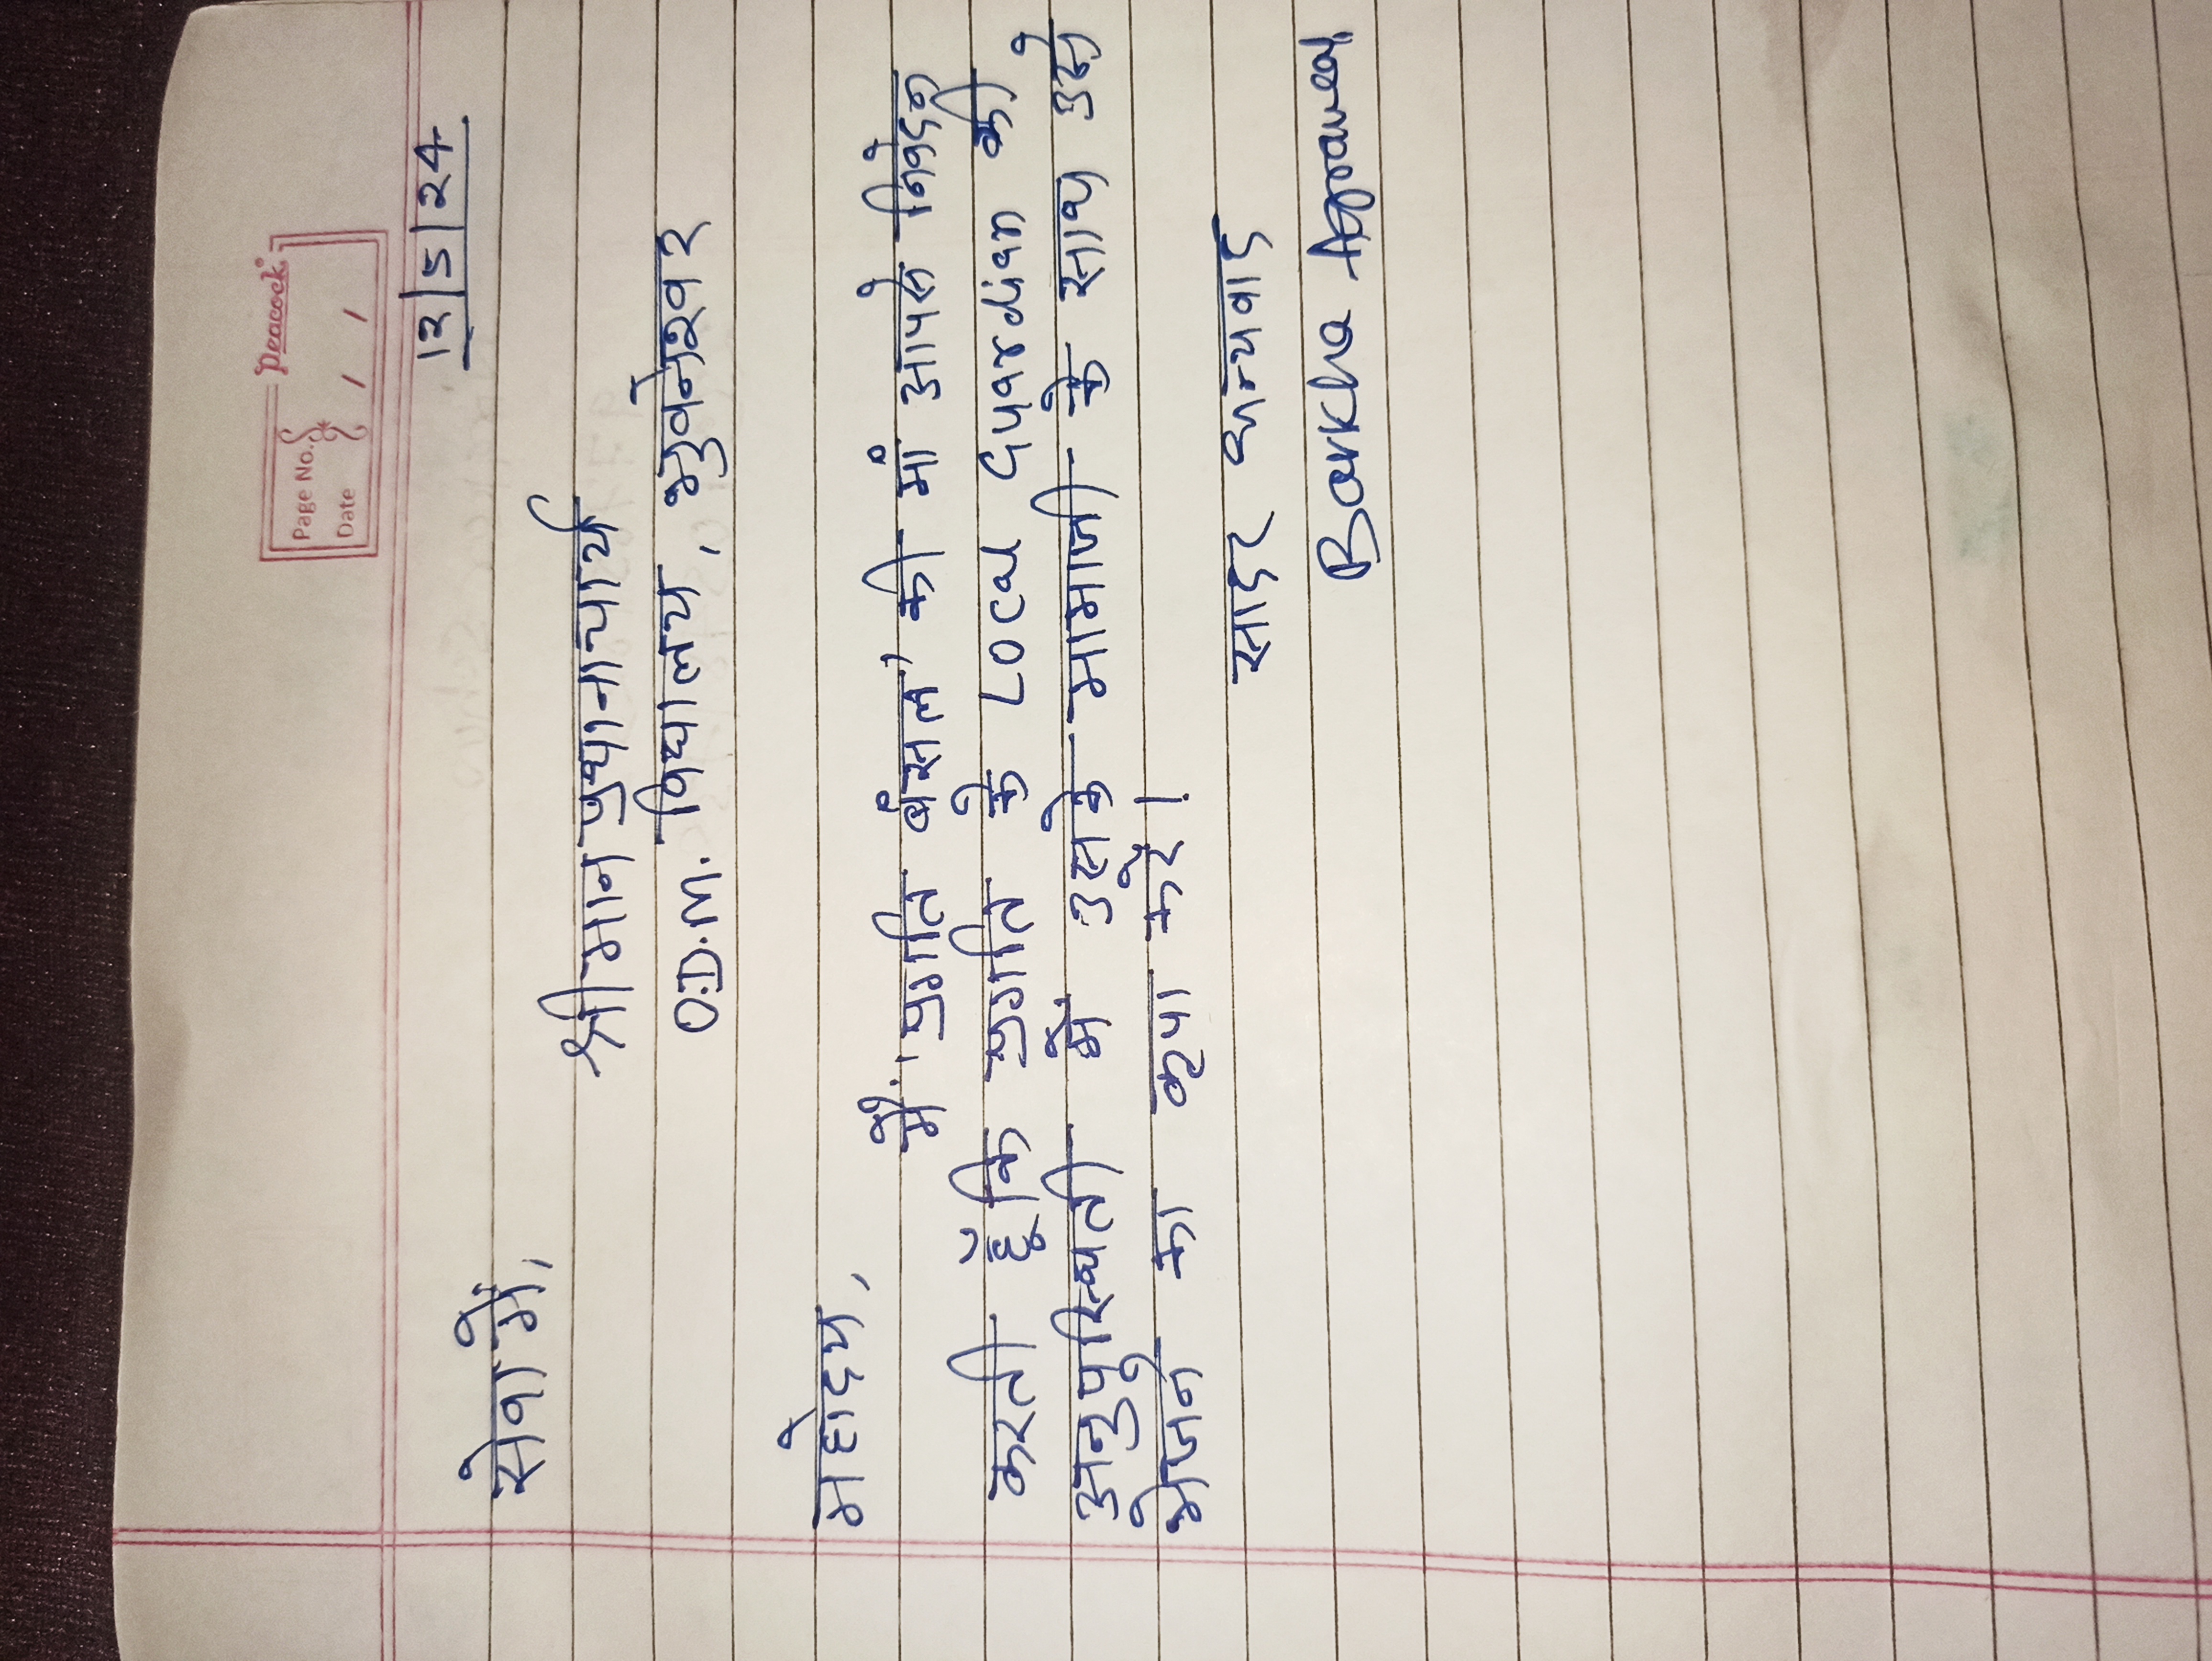 Peacock
Page No.
Date / /
12/5/24
सेवा में,
श्रीमान प्रधानाचार्य
O.D.M. विद्यालय, भुवनेश्वर
महोदय,
मैं 'प्रगति बंसल' की माँ आपसे निवेदन
करती हूँ कि प्रगति के Local Guardian की
अनुपस्थिती में उसके मामाजी के साथ उसे
भेजने का कृपा करें।
सादर धन्यवाद
Barkha Agrawal